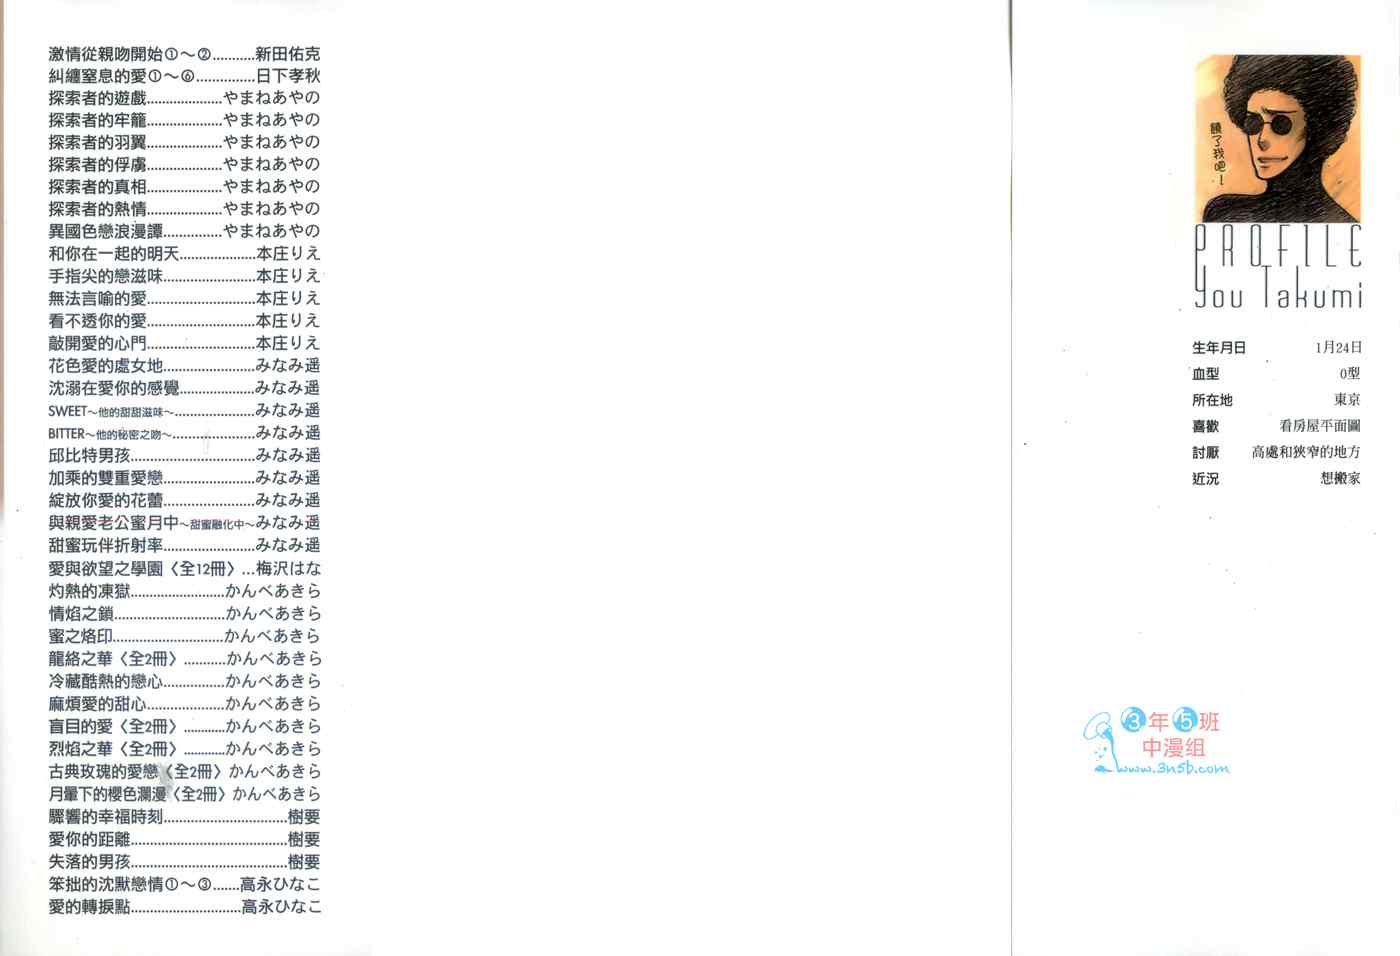 激情從親吻開始①～②...........新田佑克
糾纏窒息的愛①～⑥...............日下孝秋
探索者的遊戲....................やまねあやの
探索者的牢籠....................やまねあやの
探索者的羽翼....................やまねあやの
探索者的俘虜....................やまねあやの
探索者的真相....................やまねあやの
探索者的熱情....................やまねあやの
異國色戀浪漫譚...............やまねあやの
和你在一起的明天....................本庄りえ
手指尖的戀滋味........................本庄りえ
無法言喻的愛............................本庄りえ
看不透你的愛............................本庄りえ
敲開愛的心門............................本庄りえ
花色愛的處女地........................みなみ遥
沈溺在愛你的感覺....................みなみ遥
SWEET～他的甜甜滋味～.....................みなみ遥
BITTER～他的秘密之吻～......................みなみ遥
邱比特男孩................................みなみ遥
加乘的雙重愛戀........................みなみ遥
綻放你愛的花蕾........................みなみ遥
與親愛老公蜜月中～甜蜜融化中～みなみ遥
甜蜜玩伴折射率........................みなみ遥
愛與欲望之學園〈全12冊〉...梅沢はな
灼熱的凍獄.........................かんべあきら
情焰之鎖.............................かんべあきら
蜜之烙印.............................かんべあきら
龍絡之華〈全2冊〉...........かんべあきら
冷藏酷熱的戀心................かんべあきら
麻煩愛的甜心....................かんべあきら
盲目的愛〈全2冊〉...........かんべあきら
烈焰之華〈全2冊〉...........かんべあきら
古典玫瑰的愛戀〈全2冊〉かんべあきら
月暈下的櫻色瀾漫〈全2冊〉かんべあきら
驟響的幸福時刻................................樹要
愛你的距離........................................樹要
失落的男孩........................................樹要
笨拙的沈默戀情①～③.......高永ひなこ
愛的轉捩點.............................高永ひなこ
饒了我吧～
PROFILE
You Takumi
生年月日 1月24日
血型 O型
所在地 東京
喜歡 看房屋平面圖
討厭 高處和狹窄的地方
近況 想搬家
3年5班
中漫组
www.3n5b.com